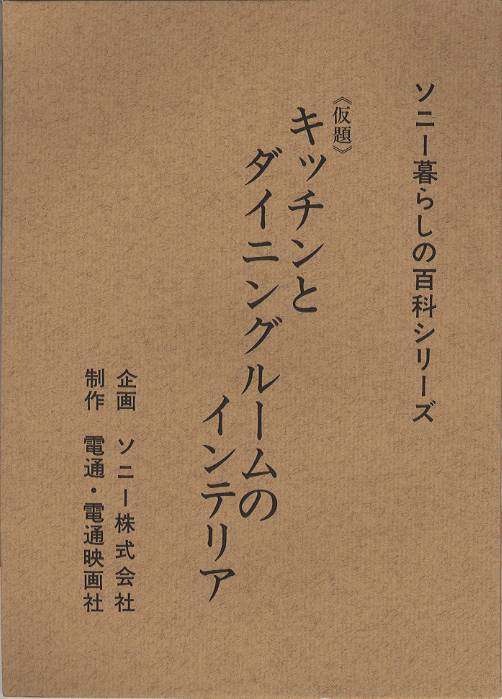 ソニー暮らしの百科シリーズ
《仮題》
キッチンと
ダイニングルームの
インテリア
企画 ソニー株式会社
制作 電通・電通映画社